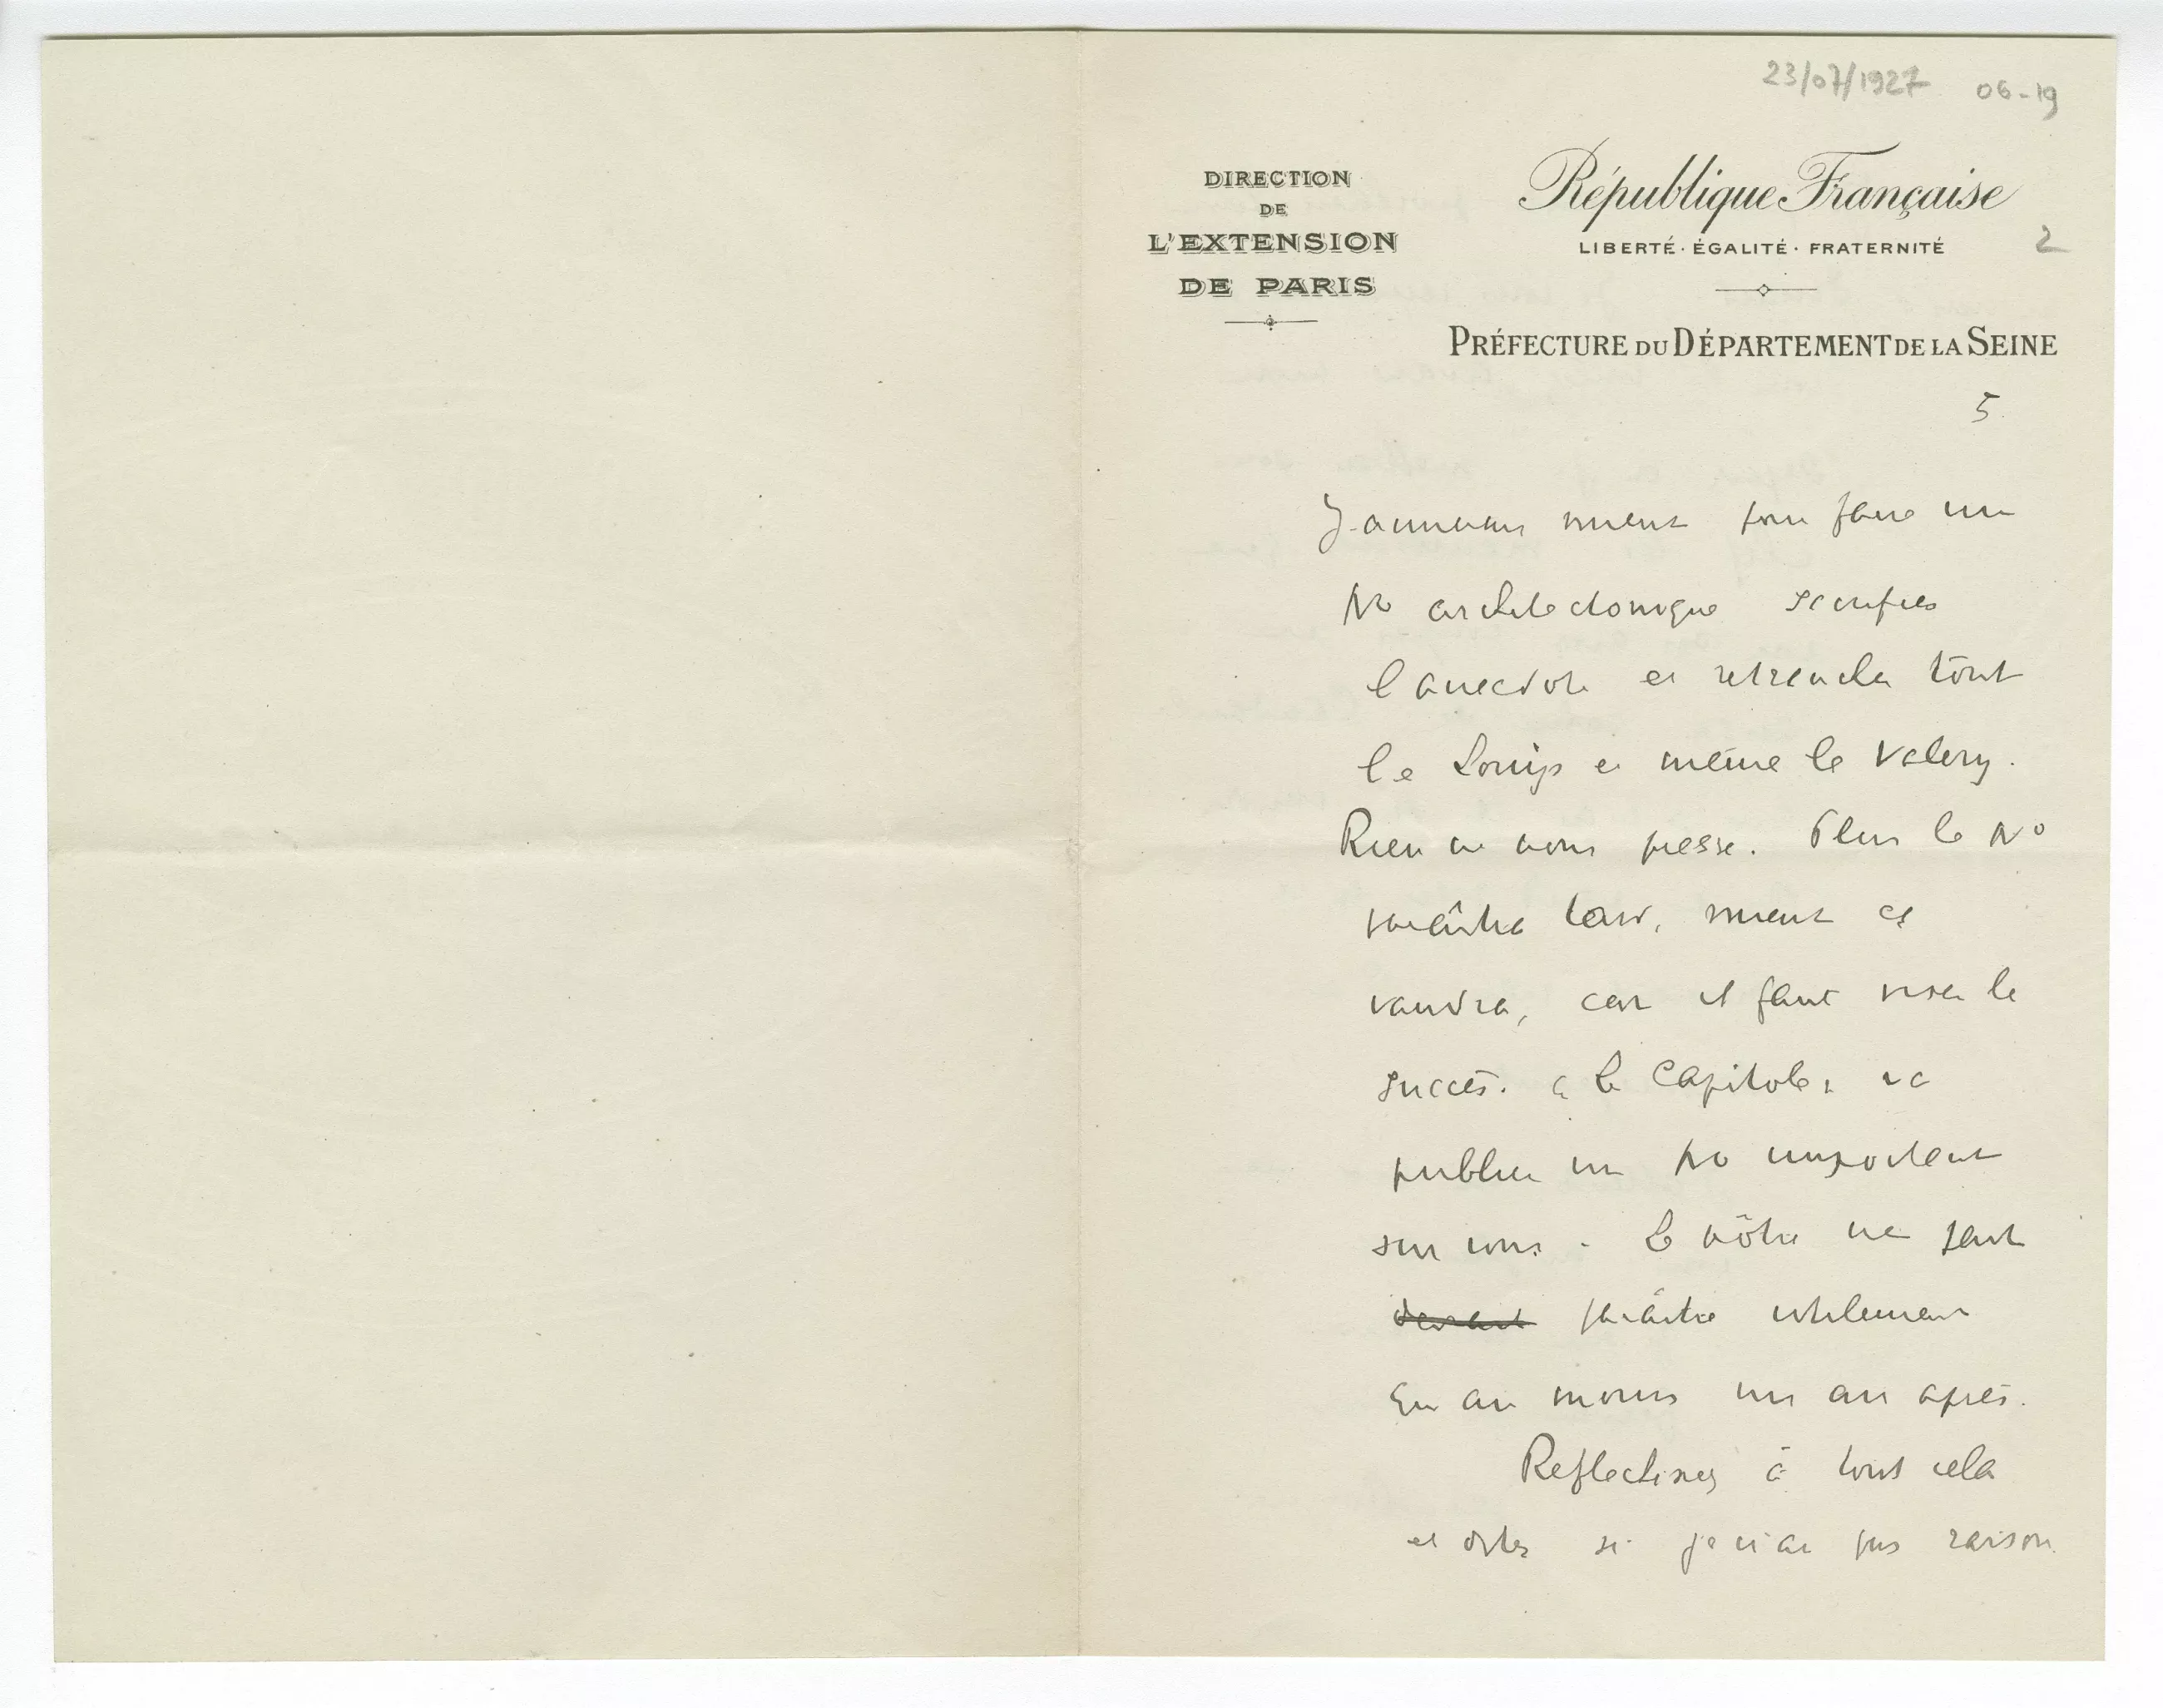 23/07/1927 06-19
DIRECTION
DE
L'EXTENSION
DE PARIS
République Française
LIBERTÉ · ÉGALITÉ · FRATERNITÉ
2
PRÉFECTURE DU DÉPARTEMENT DE LA SEINE
5.
J'aimerais mieux pour faire un
No architectonique sacrifier
l'anecdote et retrancher tout
le Louÿs et même le Valery.
Rien ne nous presse. Plus le No
paraîtra tard, mieux ça
vaudra, car il faut viser le
succès. « Le Capitole » va
publier un No important
sur vous. Le nôtre ne peut
paraître utilement
qu'au moins un an après.
Reflechissez à tout cela
et dites si je n'ai pas raison.